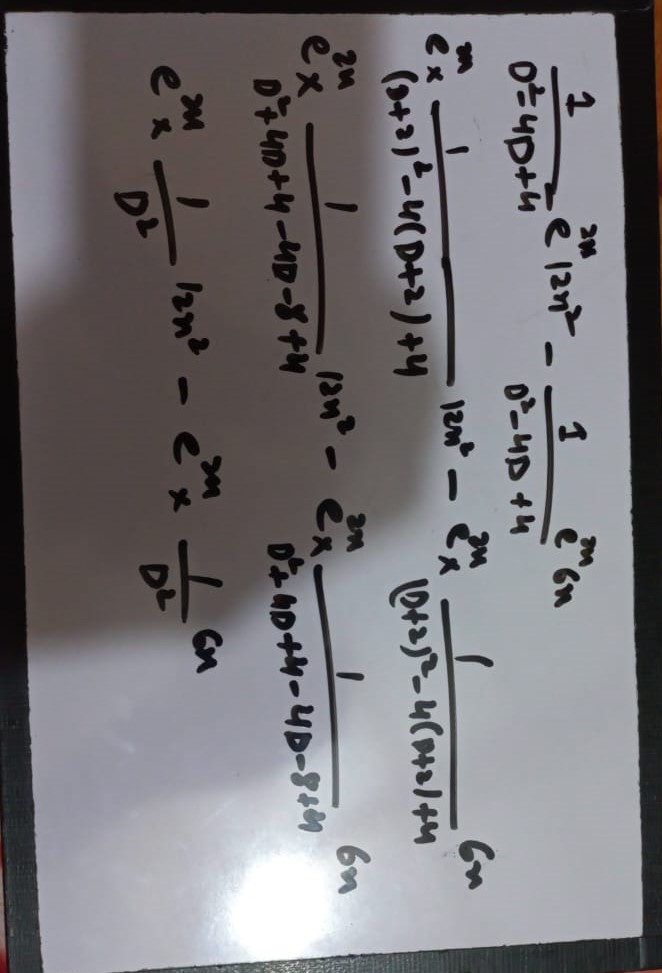 1/(D²-4D+4) e^{2x} 12x² - 1/(D²-4D+4) e^{2x} 6x
e^{2x} × 1/((D+2)²-4(D+2)+4) 12x² - e^{2x} × 1/((D+2)²-4(D+2)+4) 6x
e^{2x} × 1/(D²+4D+4-4D-8+4) 12x² - e^{2x} × 1/(D²+4D+4-4D-8+4) 6x
e^{2x} × 1/D² 12x² - e^{2x} × 1/D² 6x